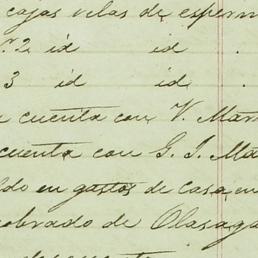 cajas velas de esperm
2 id id
3 id id
cuenta con V. Mar
cuenta con G. I. Ma
ldo en gastos de casa, en
cobrado de Olasaga